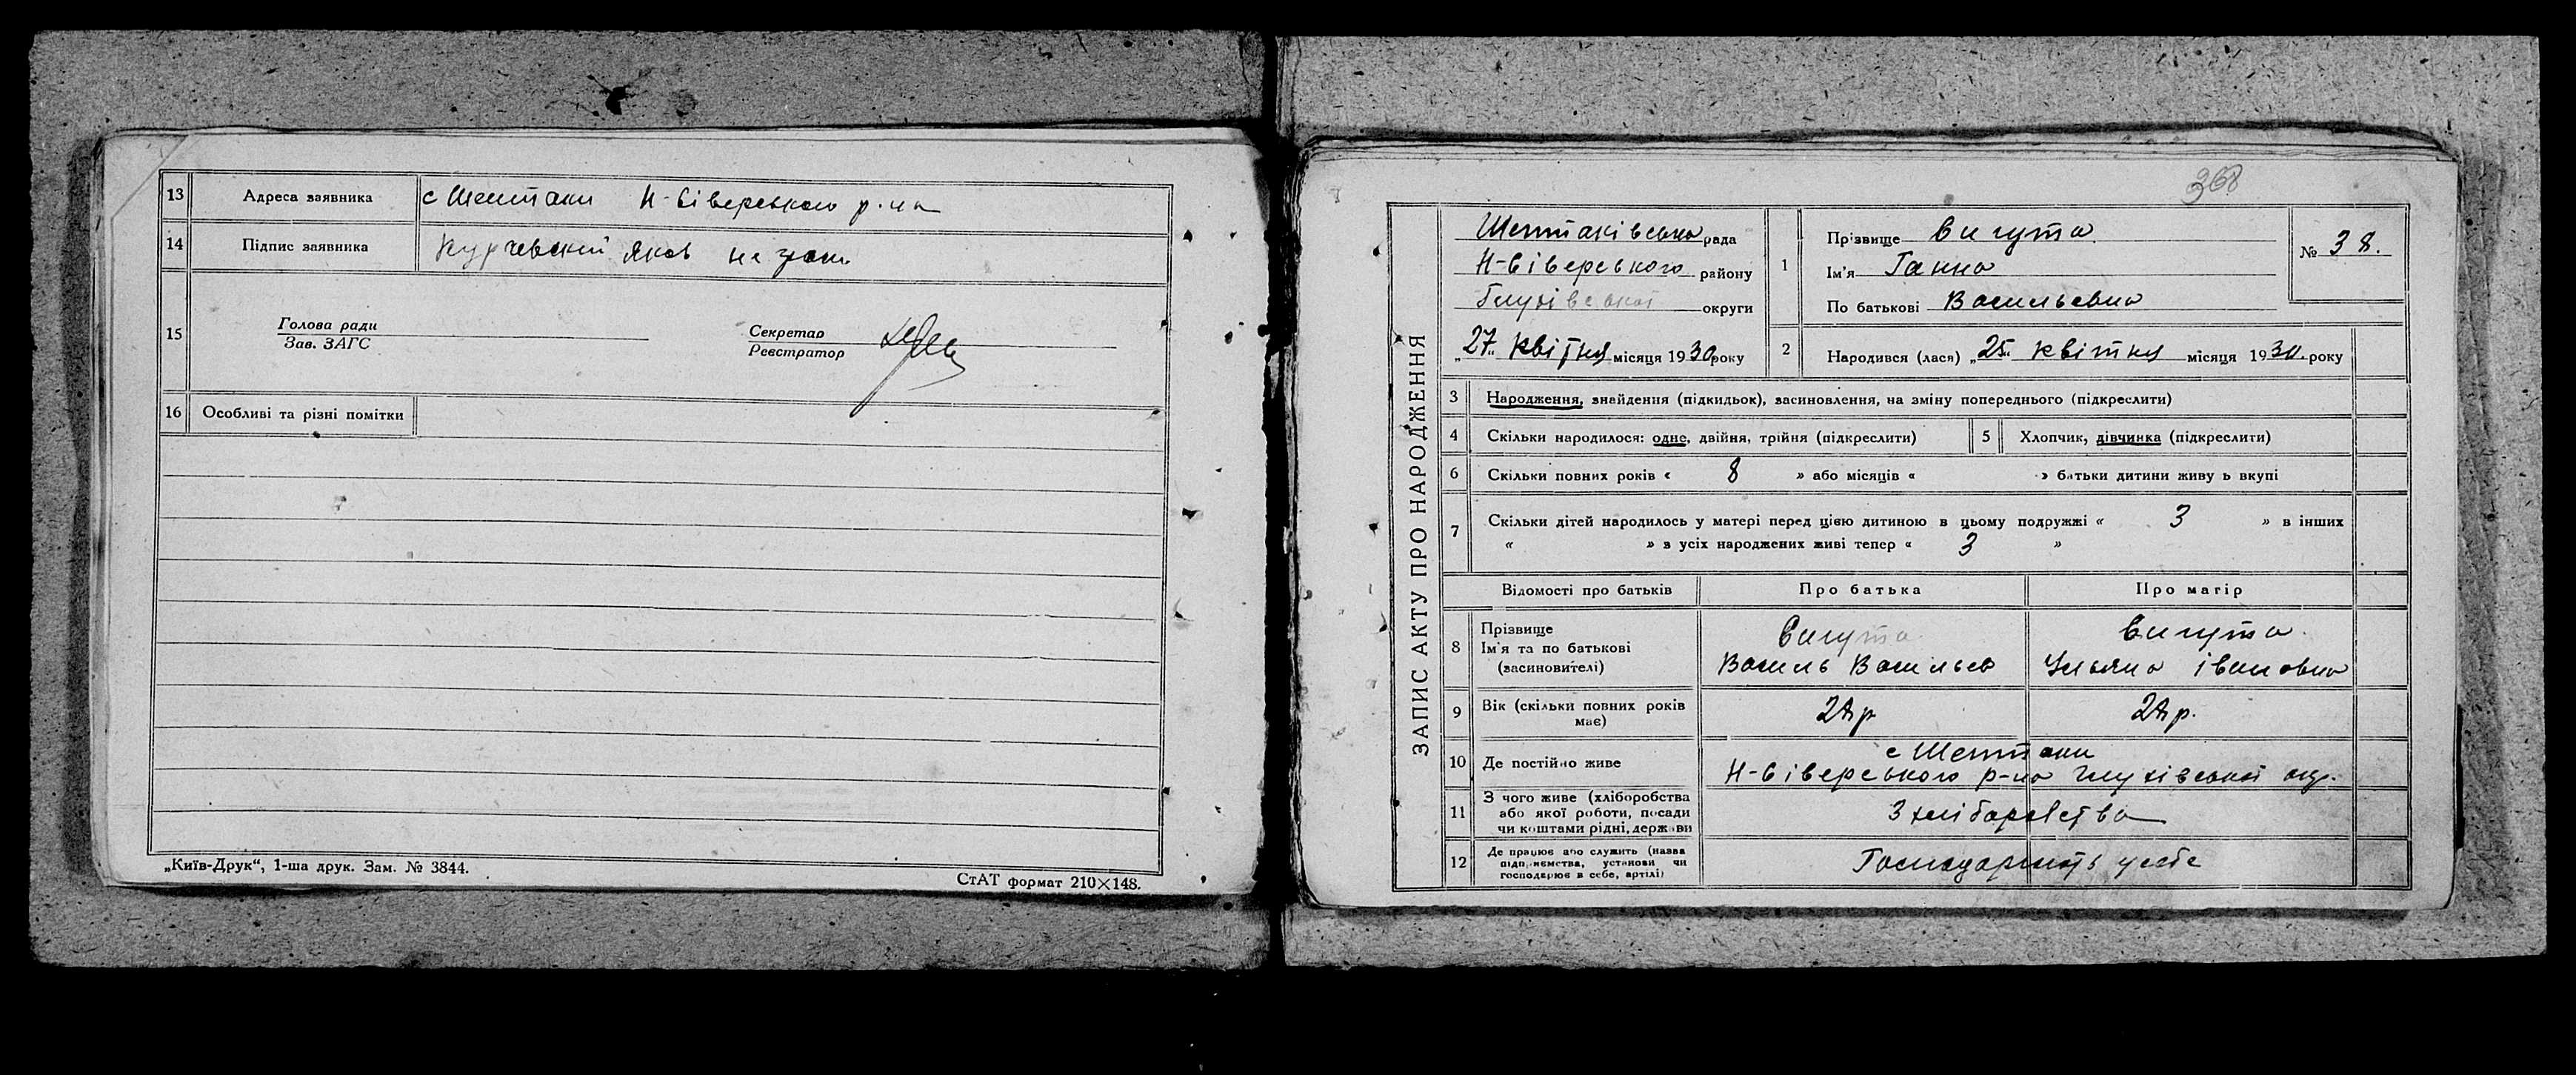 13 Адреса заявника с Шептаки Н-Сіверського р-на
14 Підпис заявника Курчевский Яков
15 Голова ради
Зав. ЗАГС
Секретар
Реєстратор
16 Особливі та різні помітки
„Київ-Друк“, 1-ша друк. Зам. № 3844.
СтАТ формат 210×148.
368
ЗАПИС АКТУ ПРО НАРОДЖЕННЯ
Шептаківська рада
Н-Сіверського району
Глухівської округи
„27“ квітня місяця 1930 року
1 Прізвище Вигута
Ім'я Ганна
По батькові Васильевна
№ 38.
2 Народився (лася) „25“ квітня місяця 1930 року
3 Народження, знайдення (підкидьок), засиновлення, на зміну попереднього (підкреслити)
4 Скільки народилося: одне, двійня, трійня (підкреслити)
5 Хлопчик, дівчинка (підкреслити)
6 Скільки повних років « 8 » або місяців « » батьки дитини живу ь вкупі
7 Скільки дітей народилось у матері перед цією дитиною в цьому подружжі « 3 » в інших
« » з усіх народжених живі тепер « 3 »
Відомості про батьків Про батька Про матір
8 Прізвище
Ім'я та по батькові
(засиновителі)
Вигута
Василь Васильев
Вигута
Ульяна Івановна
9 Вік (скільки повних років
має)
10 Де постійно живе
с Шептаки
Н-Сіверського р-на Глухівської окр.
11 З чого живе (хліборобства
або якої роботи, посади
чи коштами рідні, держави
З хліборобства
12 Де працює або служить (назва
підприємства, установи чи
господарює в себе, артілі)
Господарить у себе